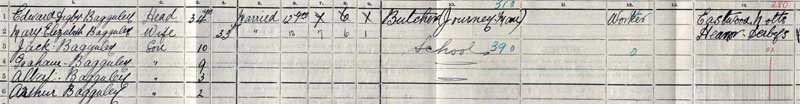 310 280
1 Edward Digby Bagguley Head 34 Married Butcher (Journeyman) Worker Eastwood Notts
2 Mary Elizabeth Bagguley Wife 33 " 12 7 6 1 Heanor Derbys
3 Jack Bagguley Son 10 School 390 0
4 Graham Bagguley " 9
5 Albert Bagguley " 3
6 Arthur Bagguley " 2